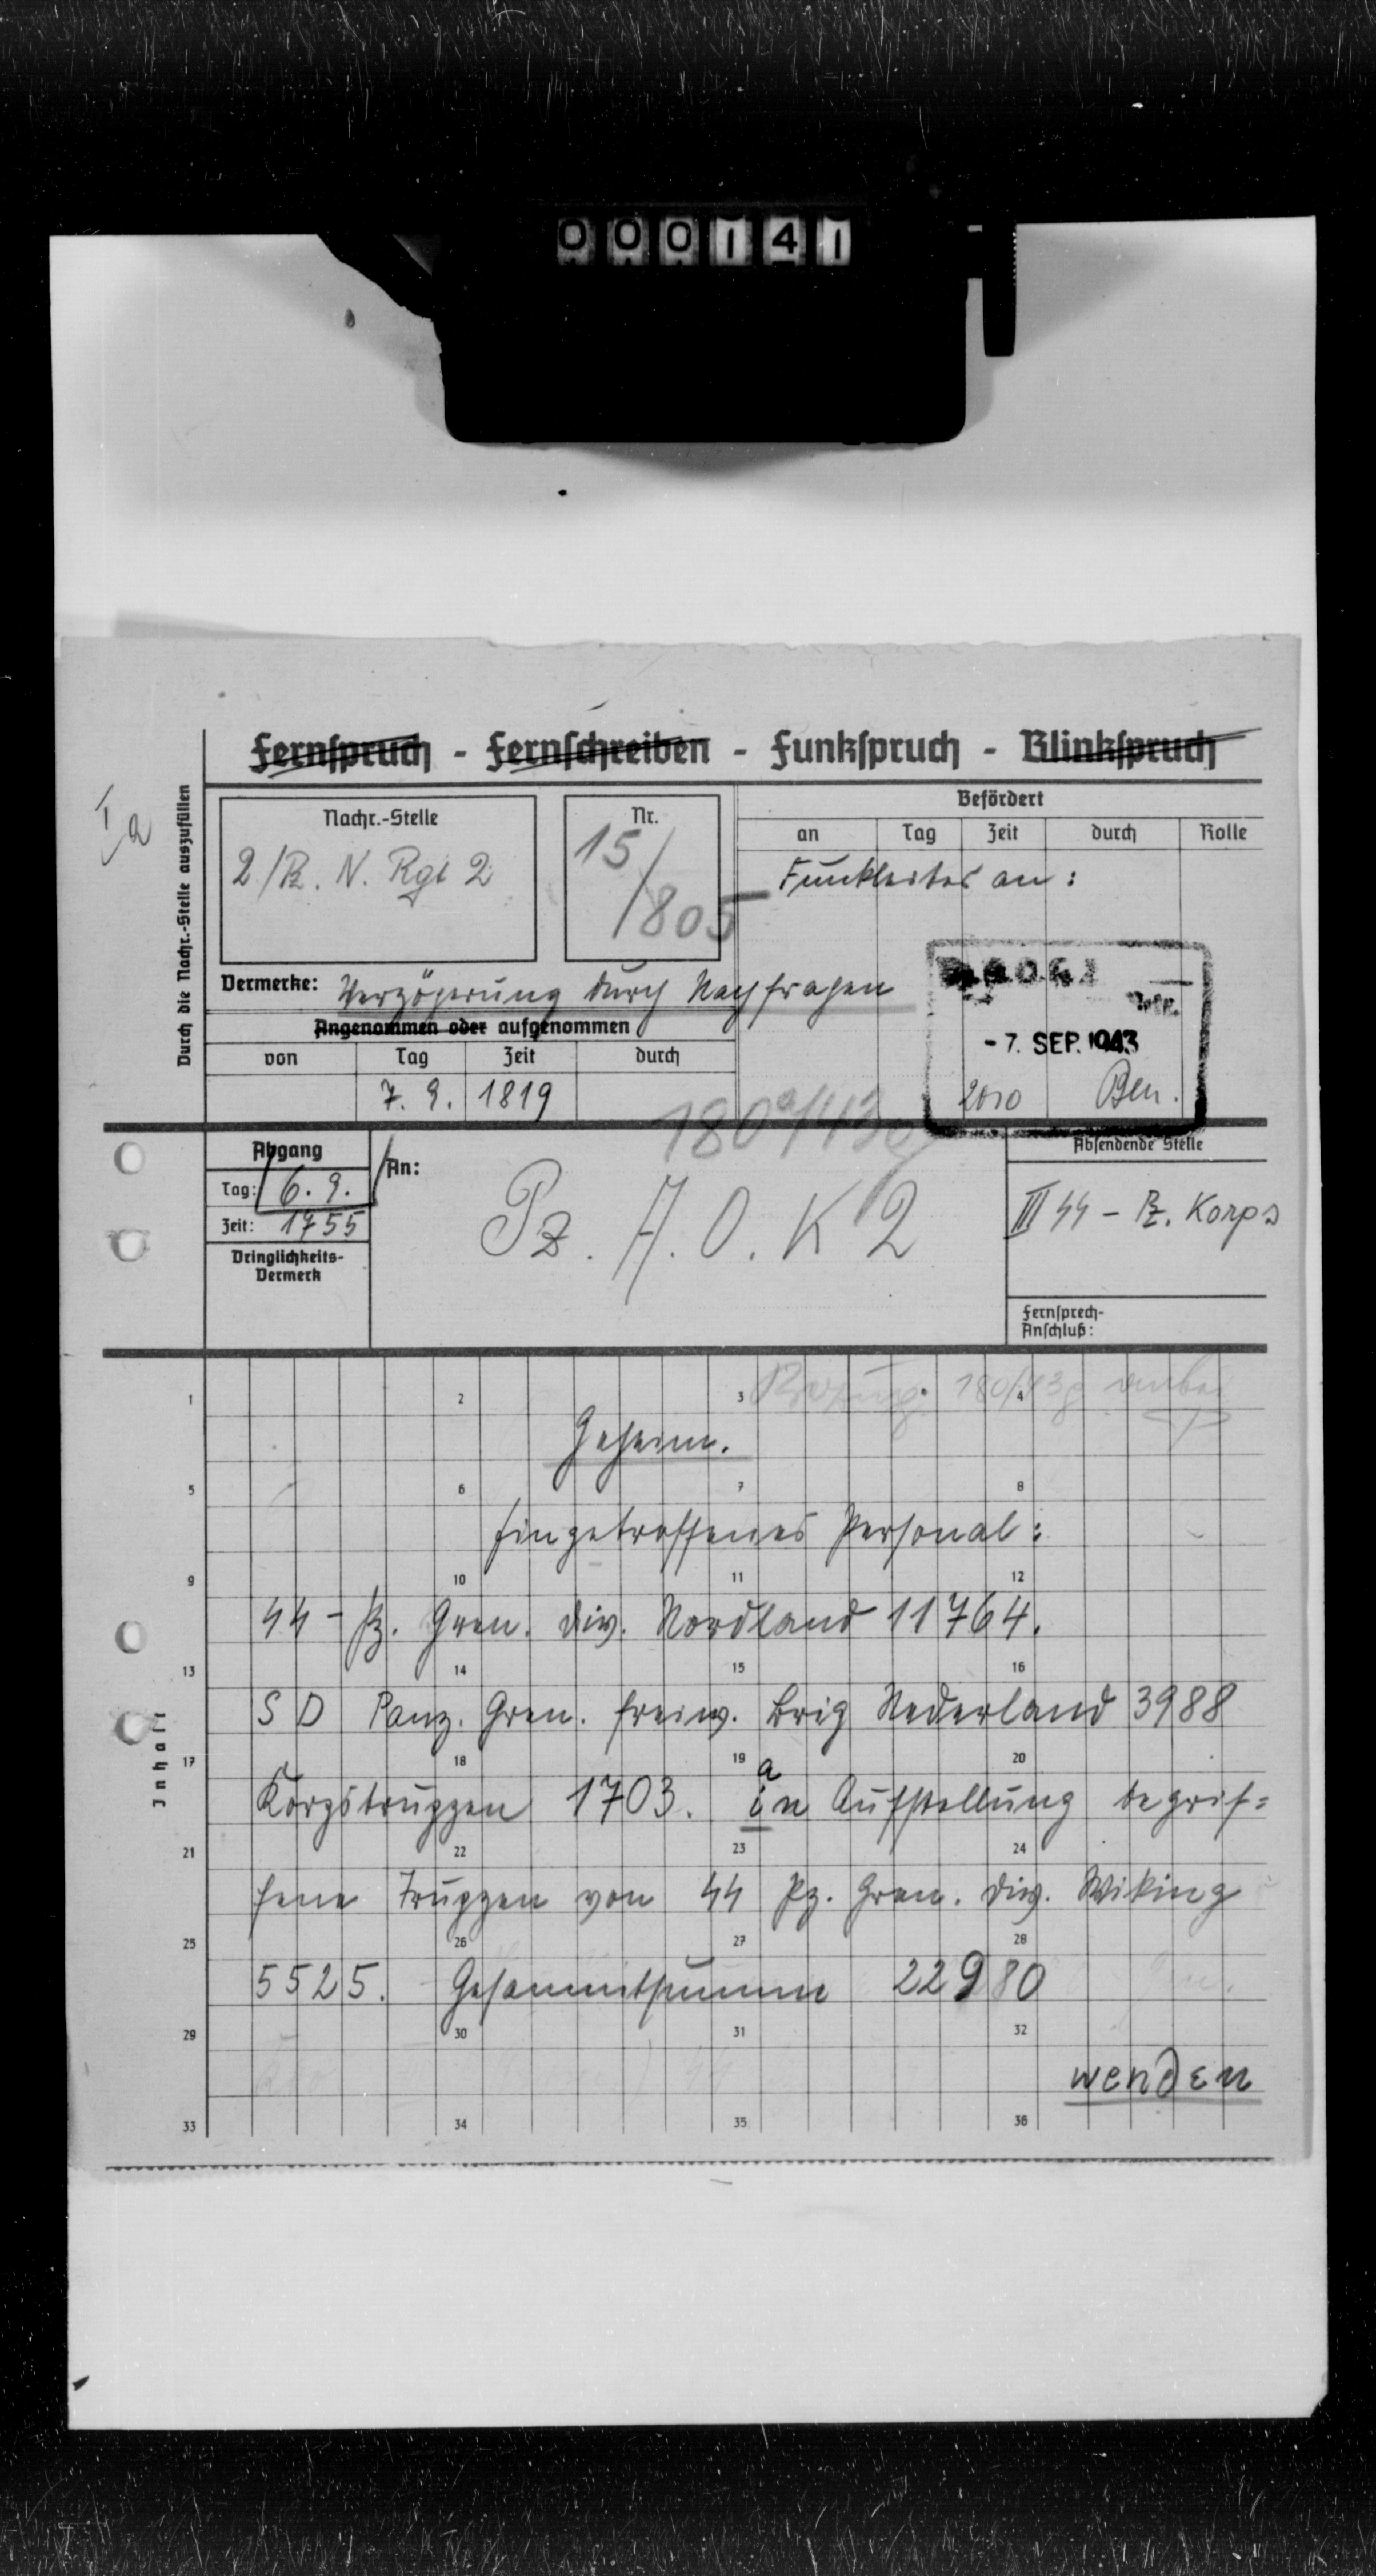 000141
Fernspruch - Fernschreiben - Funkspruch - Blinkspruch
Ia
Durch die Nachr.-Stelle auszufüllen
Nachr.-Stelle
2/Pz. N. Rgt 2
Nr.
15/
/805
Befördert
an Tag Zeit durch Rolle
Funkleiter an:
Vermerke: Verzögerung durch Nachfragen
- 7. SEP. 1943
2010 Ben.
Angenommen oder aufgenommen
von Tag Zeit durch
7. 9. 1819
Abgang
Tag: 6. 9.
Zeit: 1755
Dringlichkeits-
Vermerk
An:
Pz. A. O. K 2
Absendende Stelle
III SS - Pz. Korps
Fernsprech-
Anschluß:
Inhalt
1 2 3 4
Geheim.
5 6 7 8
Eingetroffenes Personal:
9 10 11 12
SS - Pz. Gren. Div. Nordland 11764.
13 14 15 16
S D Panz. Gren. Freiw. Brig Nederland 3988
17 18 19 20
a
Korpstruppen 1703. in Aufstellung begrif=
21 22 23 24
fene Truppen von SS Pz. Gren. Div. Wiking
25 26 27 28
5525. Gesammtsumme 22980
29 30 31 32
wenden
33 34 35 36